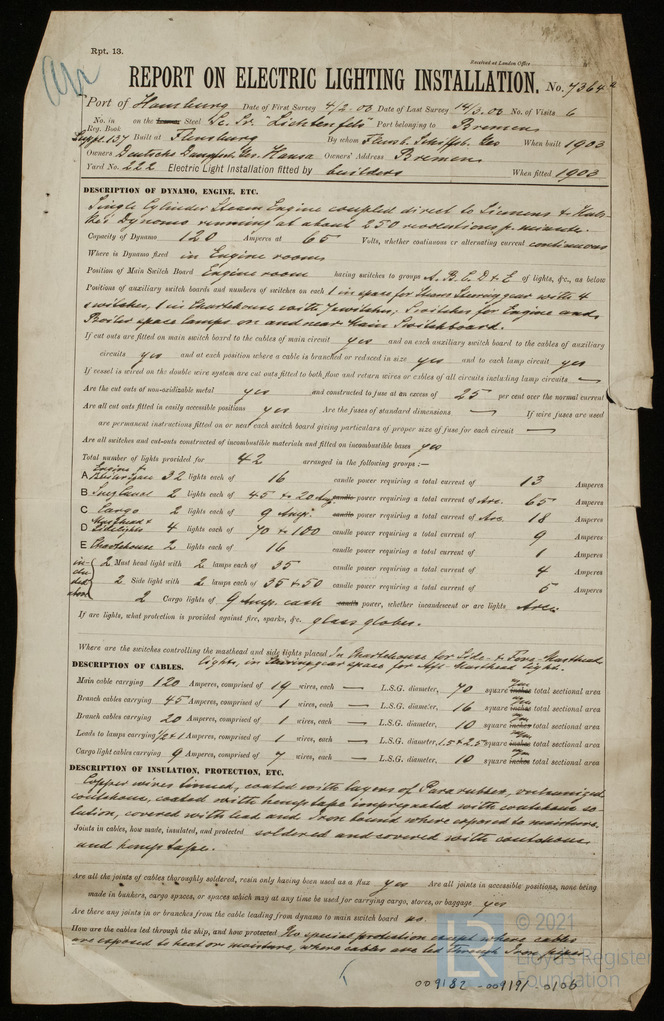 Rpt. 13.
Received at London Office
REPORT ON ELECTRIC LIGHTING INSTALLATION. No. 7364
Port of Hamburg Date of First Survey 4/2.03 Date of Last Survey 14/3.03 No. of Visits 6
No. in Reg. Book on the Iron or Steel Sc. Sr. "Lichtenfels" Port belonging to Bremen
Suppt. 157 Built at Flensburg By whom Flensb. Schiffsb. Ges When built 1903
Owners Deutsche Dampfsch. Ges. Hansa Owners' Address Bremen
Yard No. 222 Electric Light Installation fitted by builders When fitted 1903
DESCRIPTION OF DYNAMO, ENGINE, ETC.
Single Cylinder Steam Engine coupled direct to Siemens & Halske's Dynamo running at about 250 revolutions p. minute.
Capacity of Dynamo 120 Amperes at 65 Volts, whether continuous or alternating current continuous
Where is Dynamo fixed in Engine room
Position of Main Switch Board Engine room having switches to groups A. B. C. D & E of lights, &c., as below
Positions of auxiliary switch boards and numbers of switches on each 1 in space for Steering gear with 4
switches, 1 in Chartehouse with 7 switches; 5 switches for Engine and
Boiler space lamps on and near Main Switchboard.
If cut outs are fitted on main switch board to the cables of main circuit yes and on each auxiliary switch board to the cables of auxiliary
circuits yes and at each position where a cable is branched or reduced in size yes and to each lamp circuit yes
If vessel is wired on the double wire system are cut outs fitted to both flow and return wires or cables of all circuits including lamp circuits —
Are the cut outs of non-oxidizable metal yes and constructed to fuse at an excess of 25 per cent over the normal current
Are all cut outs fitted in easily accessible positions yes Are the fuses of standard dimensions — If wire fuses are used
are permanent instructions fitted on or near each switch board giving particulars of proper size of fuse for each circuit —
Are all switches and cut-outs constructed of incombustible materials and fitted on incombustible bases yes
Total number of lights provided for 42 arranged in the following groups :—
A Engine & Boiler Space 32 lights each of 16 candle power requiring a total current of 13 Amperes
B 2 lights each of 45 & 20 Amp. candle power requiring a total current of Arc. 65 Amperes
C Cargo 2 lights each of 9 Amp. candle power requiring a total current of Arc. 18 Amperes
D Masthead & Sidelights 4 lights each of 70 & 100 candle power requiring a total current of 9 Amperes
E Chartehouse 2 lights each of 16 candle power requiring a total current of 1 Amperes
included above
2 Mast head light with 2 lamps each of 35 candle power requiring a total current of 4 Amperes
2 Side light with 2 lamps each of 35 & 50 candle power requiring a total current of 5 Amperes
2 Cargo lights of 9 Amp. each candle power, whether incandescent or arc lights Arc.
If arc lights, what protection is provided against fire, sparks, &c. glass globes.
Where are the switches controlling the masthead and side lights placed In Chartehouse for Side & Fore-Masthead
lights, in Steeringgear space for Aft Masthead light.
DESCRIPTION OF CABLES.
Main cable carrying 120 Amperes, comprised of 19 wires, each — L.S.G. diameter, 70 square inches mm total sectional area
Branch cables carrying 45 Amperes, comprised of 1 wires, each — L.S.G. diameter, 16 square inches mm total sectional area
Branch cables carrying 20 Amperes, comprised of 1 wires, each — L.S.G. diameter, 10 square inches mm total sectional area
Leads to lamps carrying 1/2 & 1 Amperes, comprised of 1 wires, each — L.S.G. diameter, 1.5 & 2.5 square inches mm total sectional area
Cargo light cables carrying 9 Amperes, comprised of 7 wires, each — L.S.G. diameter, 10 square inches mm total sectional area
DESCRIPTION OF INSULATION, PROTECTION, ETC.
Copper wires tinned, coated with layers of Para rubber, vulcanized
coutchouc, coated with hemp tape impregnated with coutchouc so-
lution, covered with lead and Iron bound where exposed to moisture.
Joints in cables, how made, insulated, and protected soldered and covered with coutchouc
and hemp tape.
Are all the joints of cables thoroughly soldered, resin only having been used as a flux yes Are all joints in accessible positions, none being
made in bunkers, cargo spaces, or spaces which may at any time be used for carrying cargo, stores, or baggage yes
Are there any joints in or branches from the cable leading from dynamo to main switch board no.
How are the cables led through the ship, and how protected No special protection except where cables
are exposed to heat or moisture, where cables are led through Iron pipes
© 2021
Lloyd's Register
Foundation
LR
009182-009191-0106